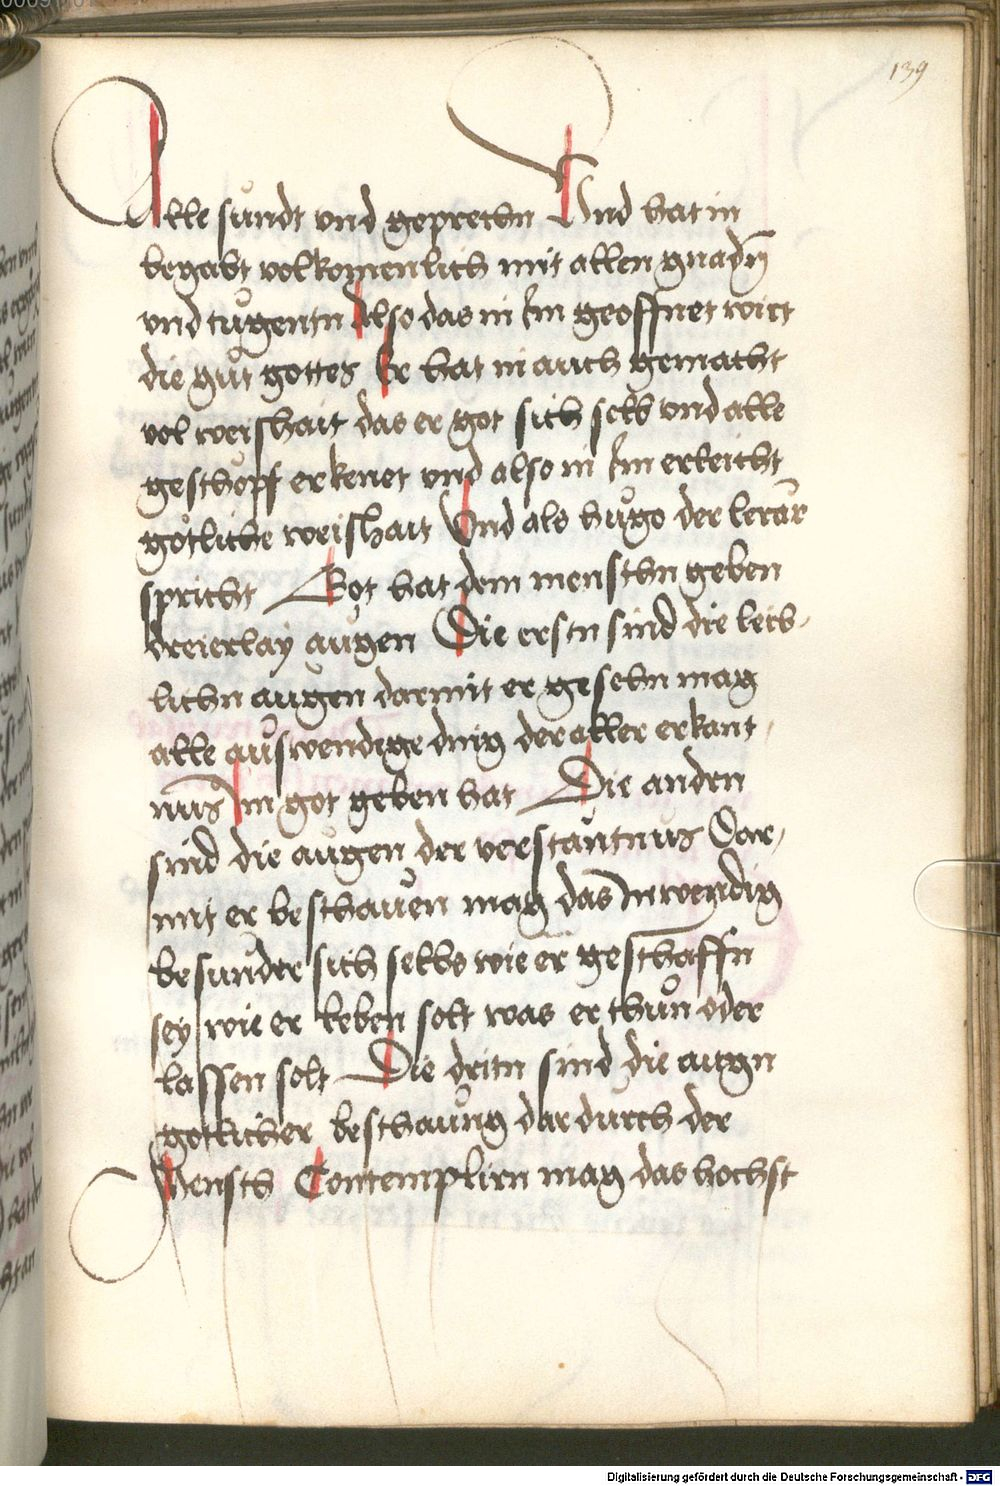 139
Alle sündt vnd geprechn Vnd hat in
begabt volkomenlich mit allen gnadn̄
vnd tugentn Also das in im geoffnet wirt
die güt gottes Er hat in auch gemacht
vol weishait das er got sich selb vnd alle
geschöpf erkenet vnd also in im erleicht
götliche weishait Vnd als hůgo der lerār
spricht Got hat dem menschn geben
dreierlay augen Die erstn sind die leib-
lichn augen darmit er gesehn mag
alle auswendige ding der aller erkant-
nus̄ im got geben hat Die andern
sind die augen der verstantnus Dar-
mit er beschauen mag das Inwendig
besunder sich selbs wie er geschaffn
sey wie er leben solt was er thůn oder
lassen solt Die dritn sind die augn
gotlicher beschaůng dardurch der
Mensch Contemplirn mag das hochst
Digitalisierung gefördert durch die Deutsche Forschungsgemeinschaft - DFG